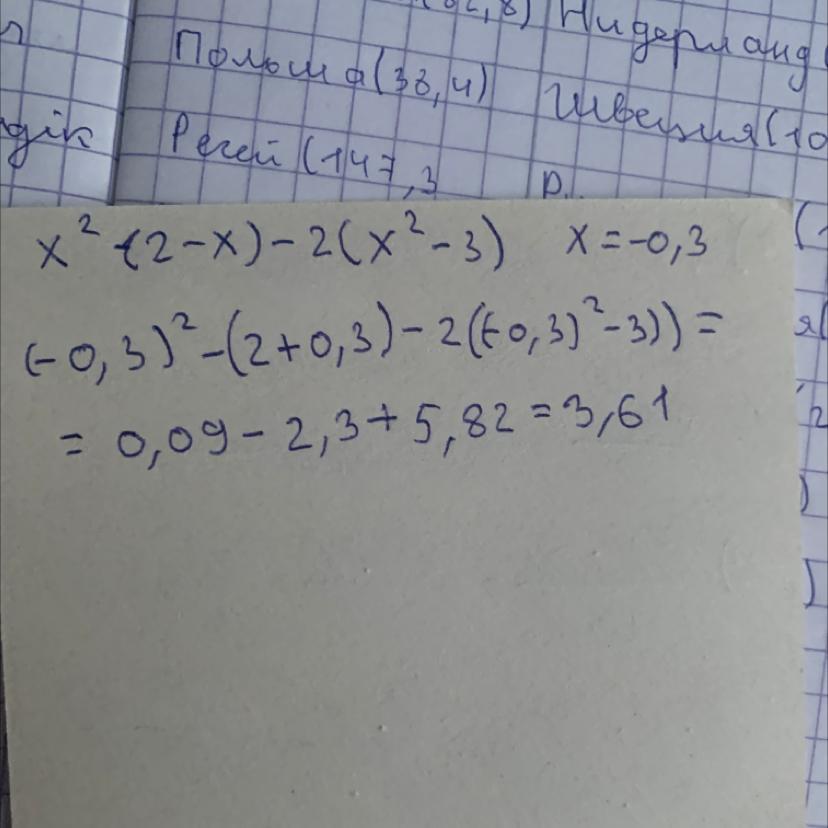 Нидерланд
Польша(38,4)
Швеция(10
Ресей (147,3
x² -(2-x)-2(x²-3) x=-0,3
(-0,3)²-(2+0,3)-2((-0,3)²-3))=
= 0,09-2,3+5,82=3,61